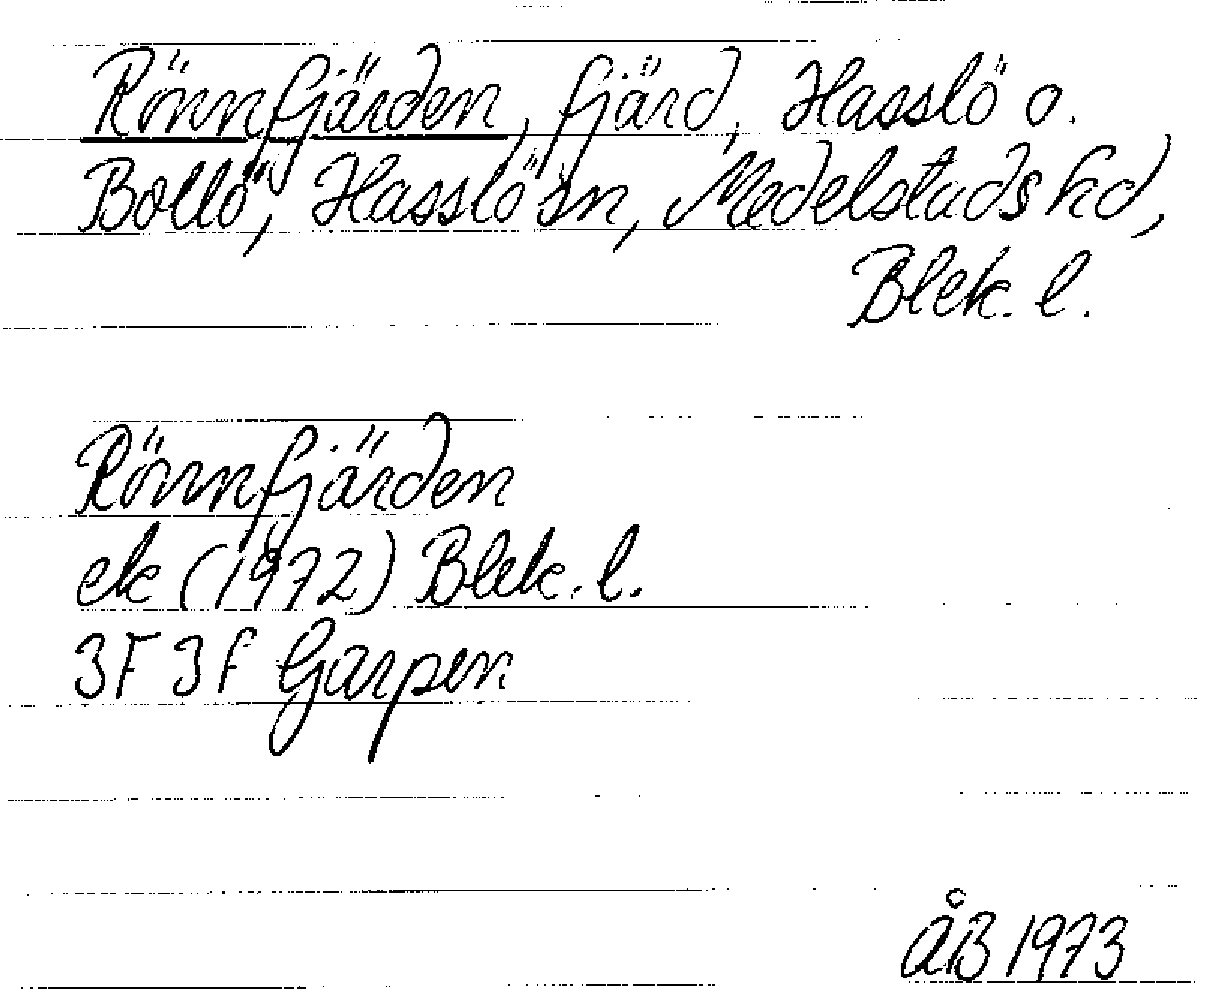 Rönnfjärden, fjärd, Hasslö o.
Bollö, Hasslö sn, Medelstads hd,
Blek. l.
Rönnfjärden
ek (1972) Blek. l.
3F 3f Garpen
ÅB 1973